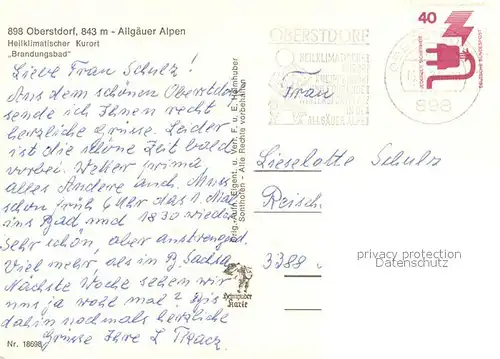 898 Oberstdorf, 843 m - Allgäuer Alpen
Heilklimatischer Kurort
"Brandungsbad"
Liebe Frau Schulz!
Aus dem schönen Oberstdorf
sende ich Ihnen recht
herzliche Grüsse. Leider
ist die schöne Zeit bald
vorbei. Wetter prima
alles Andere auch. Muss
schon früh 6 Uhr das 1. Mal
ins Bad und 18 30 wieder.
Sehr schön, aber anstrengend.
Viel mehr, als in B. Sachsa.
Nächste Woche sehen wir
uns ja wohl mal? Bis
dahin nochmals herzliche
Grüsse Ihre L
Nr. 18698
Orig.-Aufn. Eigent. u. Verl. F. u. E. Heimhuber
Sonthofen - Alle Rechte vorbehalten
Heimhuber
Karte
OBERSTDORF
HEILKLIMATISCHER
898
40
DEUTSCHE BUNDESPOST
Frau
Lieselotte Schulz
3388
privacy protection
copyright removal